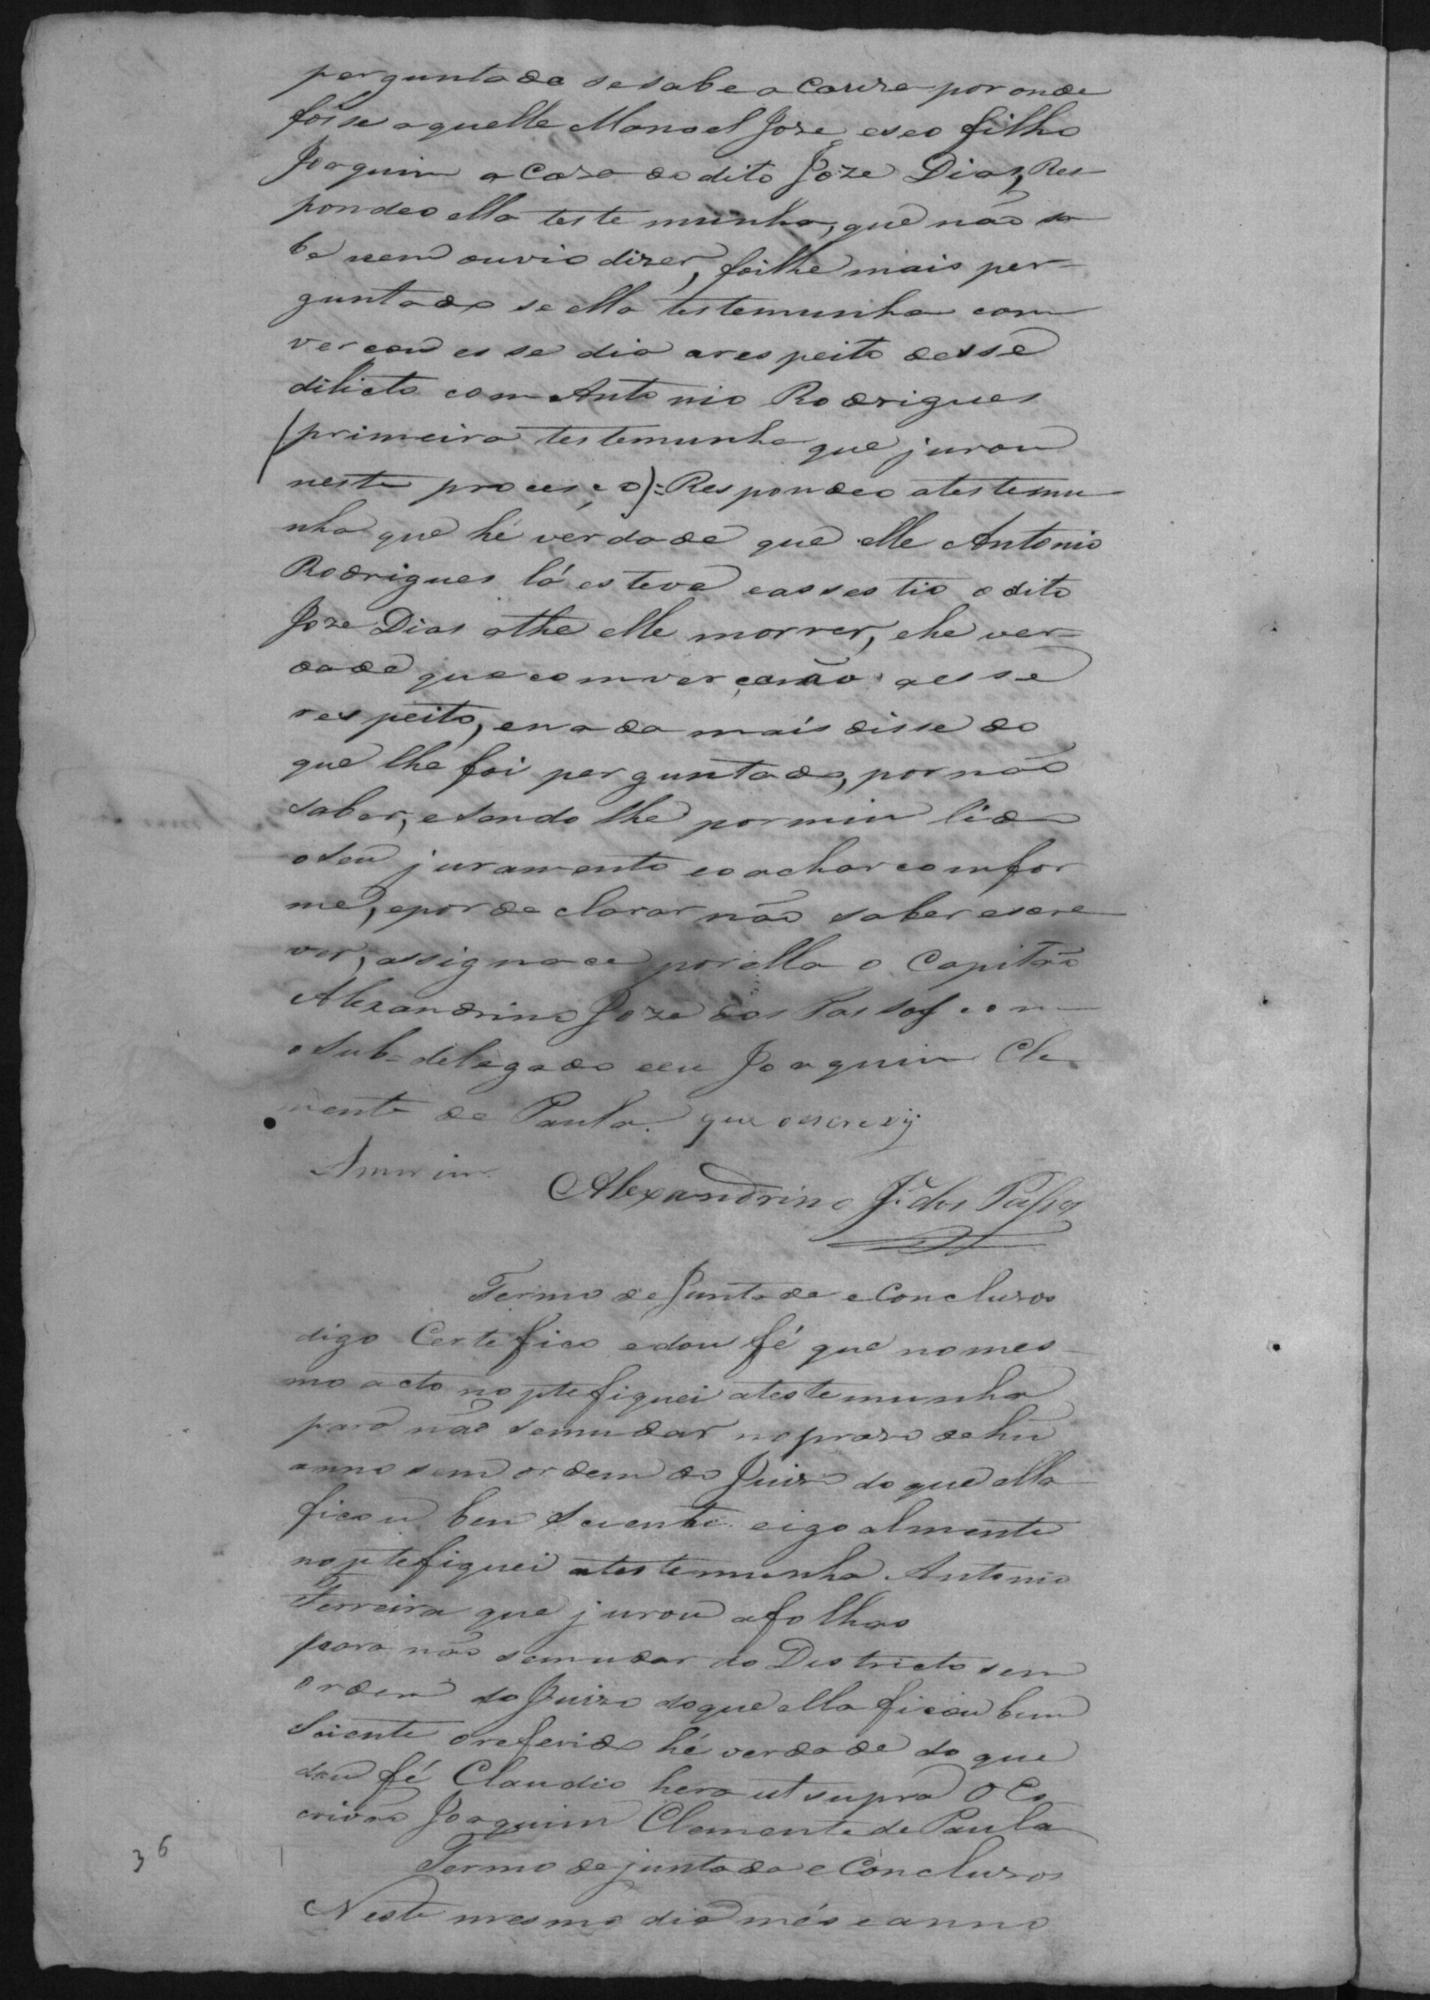 perguntada se sabe a cauza por onde
foi se aquelle Manoel Joze e seo filho
Joaquim a Caza do dito Joze Dias, Res-
pondeo ella testemunha, que não sa
be nem ouvio dizer, foi lhe mais per-
guntado se ella testemunha com
verçou esse dia a respeito desse
dilicto com Antonio Rodrigues
(primeira testemunha que jurou
neste proceço): Respondeo a testemu
nha que hé verdade que elle Antonio
Rodrigues lá esteve e assestio o dito
Joze Dias athe elle morrer, e he ver-
dade que comverçarão a esse
respeito, e nada mais disse do
que lhe foi perguntado, por não
saber, e sendo lhe por mim lido
o seu juramento e o achar comfor
me, e por declarar não saber escre
ver, assignace por ella o Capitão
Alexandrino Joze dos Passos com
o Sub-delegado e eu Joaquim Cle
mente de Paula que o escrevy
Amorim
Alexandrino J.e dos Passos
Termo de Juntada e Concluzos
digo Certefico e dou fé que no mes-
mo acto noptefiquei a testemunha
para não se mudar no prazo de hu
anno sem ordem do Juizo do que ella
ficou bem sciente e igoalmente
noptefiquei a testemunha Antonio
Ferreira que jurou a folhas
para não se mudar do Destricto sem
ordem do Juizo do que ella ficou bem
sciente o referido hé verdade do que
dou fé Claudio hera ut supra O Es
crivão Joaquim Clemente de Paula
Termo de juntada e Concluzos
Neste mesmo dia mês e anno
36